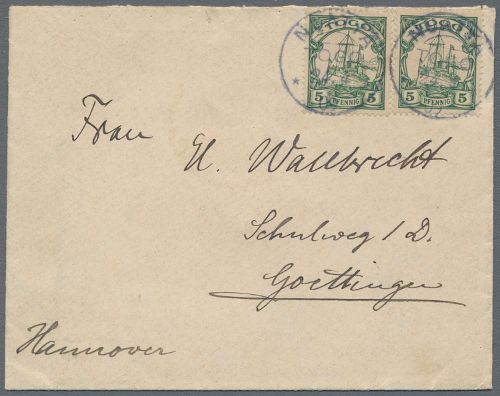 TOGO
5 PFENNIG 5
TOGO
5 PFENNIG 5
Frau
H. Wallbrecht
Schulweg 1 D.
Goettingen
Hannover